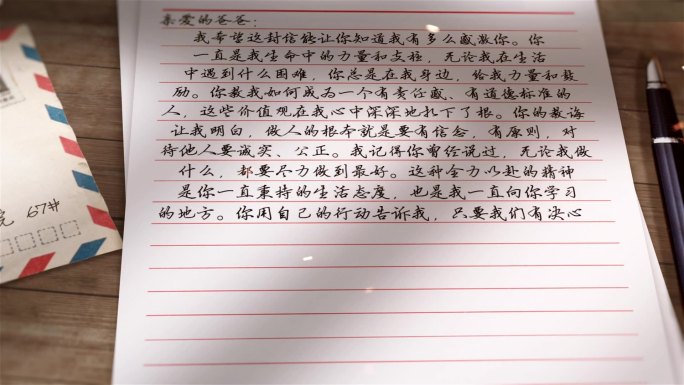 亲爱的爸爸：
我希望这封信能让你知道我有多么感激你。你
一直是我生命中的力量和支柱，无论我在生活
中遇到什么困难，你总是在我身边，给我力量和鼓
励。你教我如何成为一个有责任感、有道德标准的
人，这些价值观在我心中深深地扎下了根。你的教诲
让我明白，做人的根本就是要有信念，有原则，对
待他人要诚实、公正。我记得你曾经说过，无论我做
什么，都要尽力做到最好。这种全力以赴的精神
是你一直秉持的生活态度，也是我一直向你学习
的地方。你用自己的行动告诉我，只要我们有决心
院 67#